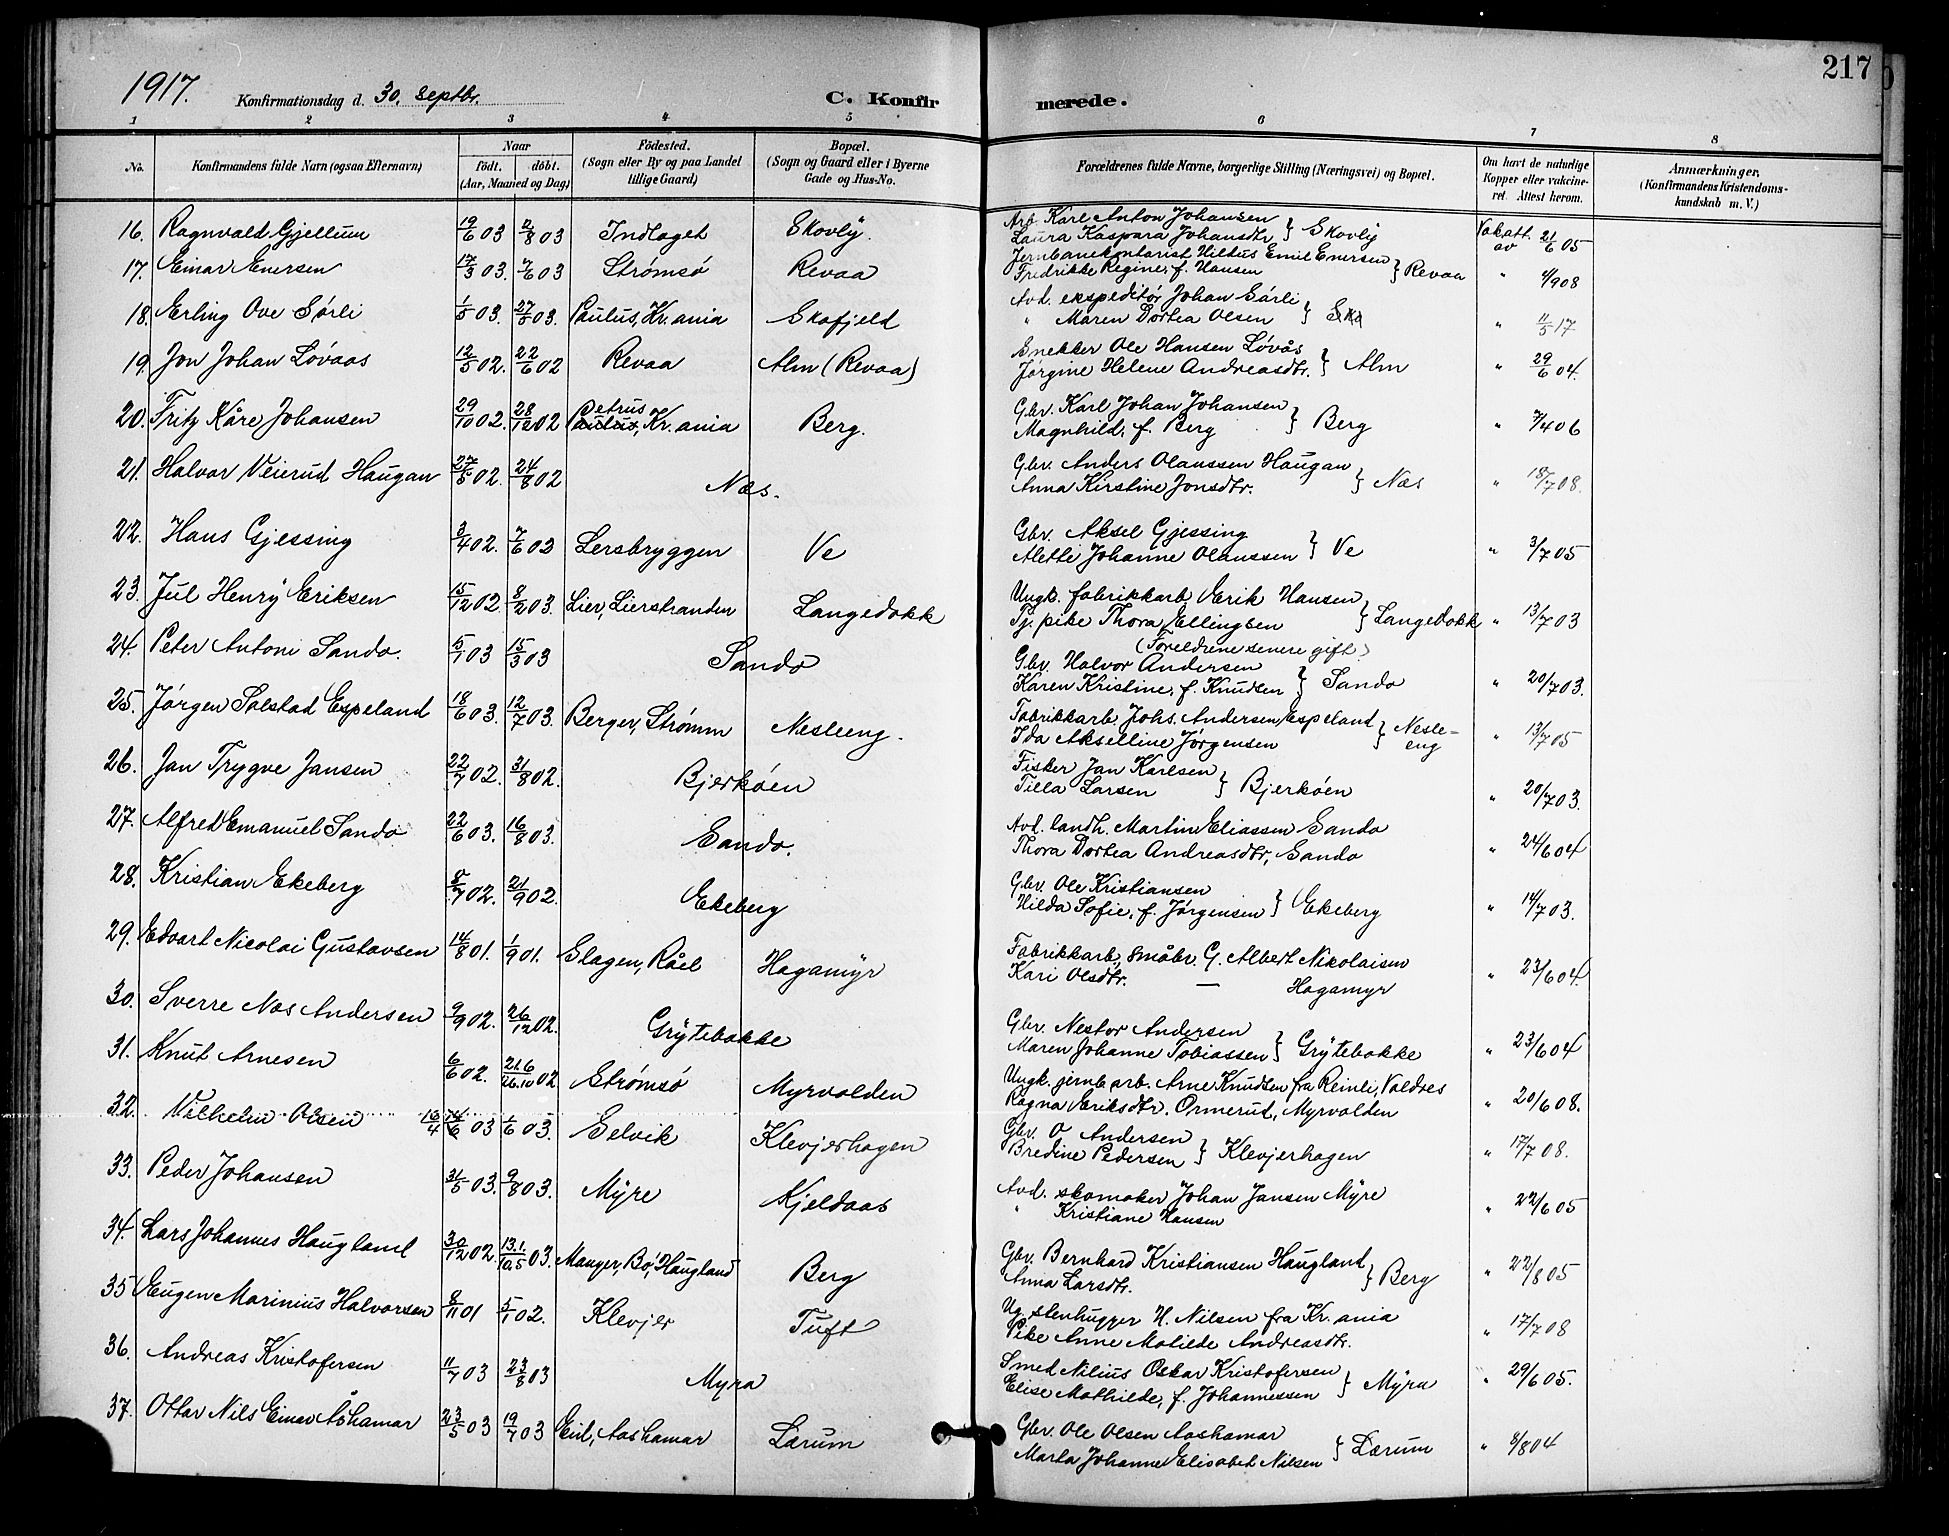 217
1917. Konfirmationsdag d. 30. septbr. C. Konfirmerede.
1 2 3 4 5 6 7 8
No. Konfirmandens fulde Navn (ogsaa Efternavn) Naar født. døbt. (Aar, Maaned og Dag) Fødested. (Sogn eller By og paa Landet tillige Gaard) Bopæl. (Sogn og Gaard eller i Byerne Gade og Hus-No. Forældrenes fulde Navne, borgerlige Stilling (Næringsvei) og Bopæl. Om havt de naturlige Kopper eller vakcineret. Attest herom. Anmærkninger, (Konfirmandens Kristendomskundskab m. V.)
16. Ragnvald Gjellum 19/6 03 2/8 03 Indlaget Skovly. Arb. Karl Anton Johansen
Laura Kaspara Johansdtr. } Skovly Vakatt. av 21/6 05
17. Einar Enersen 17/3 03. 7/6 03 Strømsø Revaa Jernbanekontorist Hildus Emil Enersen
Fredrikke Regine, f. Hansen } Revaa " 4/9 08
18. Erling Ove Sørli 1/5 03. 27/5 03. Paulus, Kr.ania Skafjeld Avd. ekspeditør Johan Sørli
" Maren Dortea Olsen } Ska " 11/5 17
19. Jon Johan Løvaas 12/5 02. 22/6 02 Revaa Alm (Revaa) Snekker Ole Hansen Løvås
Jørgine Helene Andreasdtr. } Alm " 29/6 04.
20. Fritz Kåre Johansen 29/10 02. 28/12 02 Petrus Paulus, Kr.ania Berg. Gbr. Karl Johan Johansen
Magnhild, f. Berg } Berg " 7/4 06
21. Halvor Veierud Haugan 27/5 02. 24/8 02 Næs. Gbr. Anders Olaussen Haugan
Anna Kirstine Jonsdtr. } Næs " 18/7 08.
22. Hans Gjessing 3/4 02. 7/6 02 Lersbryggen Ve Gbr. Aksel Gjessing
Alette Johanne Olaussen } Ve " 3/7 05
23. Jul Henry Eriksen 15/12 02. 8/2 03. Lier, Lierstranden Langedokk Ungk. fabrikkarb. Erik Hansen
Tj. pike Thora Ellingsen } Langedokk " 13/7 03
(Foreldrene senere gift.)
24. Peter Antoni Sando. 5/1 03 15/3 03 Sando Gbr. Halvor Andersen
Karen Kristine, f. Knudsen } Sando " 20/7 03.
25. Jørgen Solstad Espeland 18/6 03. 12/7 03. Berger, Strømm Nesleeng. Fabrikkarb. Johs. Andersen Espeland
Ida Akselline Jørgensen } Nesleeng " 13/7 05
26. Jan Trygve Jansen 22/7 02. 31/8 02. Bjerköen Fisker Jan Karlsen
Tilla Larsen } Bjerköen " 20/7 03.
27. Alfred Emanuel Sando 22/6 03. 16/8 03. Sando. Avd. landh. Martin Eliassen Sando
Thora Dortea Andreasdtr., Sando " 24/6 04
28. Kristian Ekeberg 8/7 02. 21/9 02. Ekeberg Gbr. Ole Kristiansen
Hilda Sofie, f. Jørgensen } Ekeberg " 14/7 03.
29. Edvart Nicolai Gustavsen 14/8 01. 1/9 01. Slagen, Råel Hagamyr Fabrikkarb., småbr. G. Albert Nikolaisen
Kari Olsdtr. — Hagamyr " 23/6 04.
30. Sverre Næs Andersen 9/9 02. 26/12 02. Grytebakke Gbr. Nestor Andersen
Maren Johanne Tobiassen } Grytebakke " 23/6 04
31. Knut Arnesen 6/6 02. 21.6/26.10 02 Strømsø Myrvolden Ungk. jernb.arb. Arne Knudsen fra Reinli, Valdres
Ragna Eriksdtr. Ormerud, Myrvolden " 20/6 08.
32. Vilhelm Olsen 16/4 14/6 03 1/6 03. Selvik Klevjerhagen Gbr. O. Andersen
Bredine Pedersen } Klevjerhagen " 17/7 08.
33. Peder Johansen 31/5 03. 9/8 03. Myre Kjeldaas Avd. skomaker Johan Jansen Myre
" Kristiane Hansen " 22/6 05
34. Lars Johannes Haugland 30/12 02. 13.1./10.5 03. Manger, Bø, Haugland Berg Gbr. Bernhard Kristiansen Haugland
Anna Larsdtr. } Berg " 22/8 05
35 Eugen Marinius Halvorsen 8/11 01 5/1 02. Klevjer Tuft Ug. stenhugger H. Nilsen fra Kr.ania
Pike Anne Matilde Andreasdtr. " 17/7 08
36. Andreas Kristofersen 11/7 03 23/8 03 Myra Smed Nilius Oskar Kristofersen
Elise Mathilde, f. Johannessen } Myra " 29/6 05.
37. Ottar Nils Einar Åshamar 23/5 03 19/7 03 Eid, Aashamar Lærum Gbr. Ole Olsen Aashamar
Marta Johanne Elisabet Nilsen } Lærum " 8/8 04